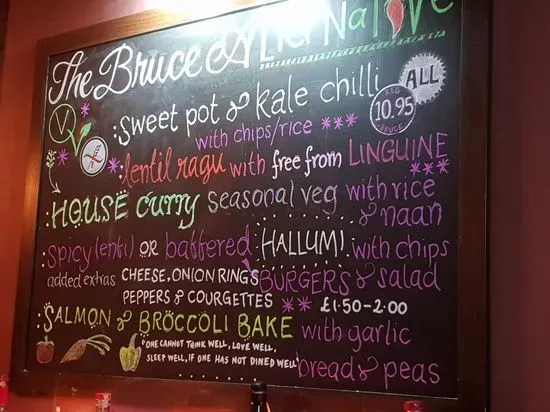 The Bruce Alternative
:Sweet pot & kale chilli
ALL
REG
10.95
BRUCE
V
with chips/rice ***
lentil ragu with free from LINGUINE
***
HOUSE curry seasonal veg with rice
& naan
spicy lentil OR battered HALLUMI with chips
added extras CHEESE. ONION RINGS BURGERS & salad
PEPPERS & COURGETTES ** £1.50-2.00
SALMON & BROCCOLI BAKE with garlic
"ONE CANNOT THINK WELL, LOVE WELL,
SLEEP WELL, IF ONE HAS NOT DINED WELL"
bread & peas